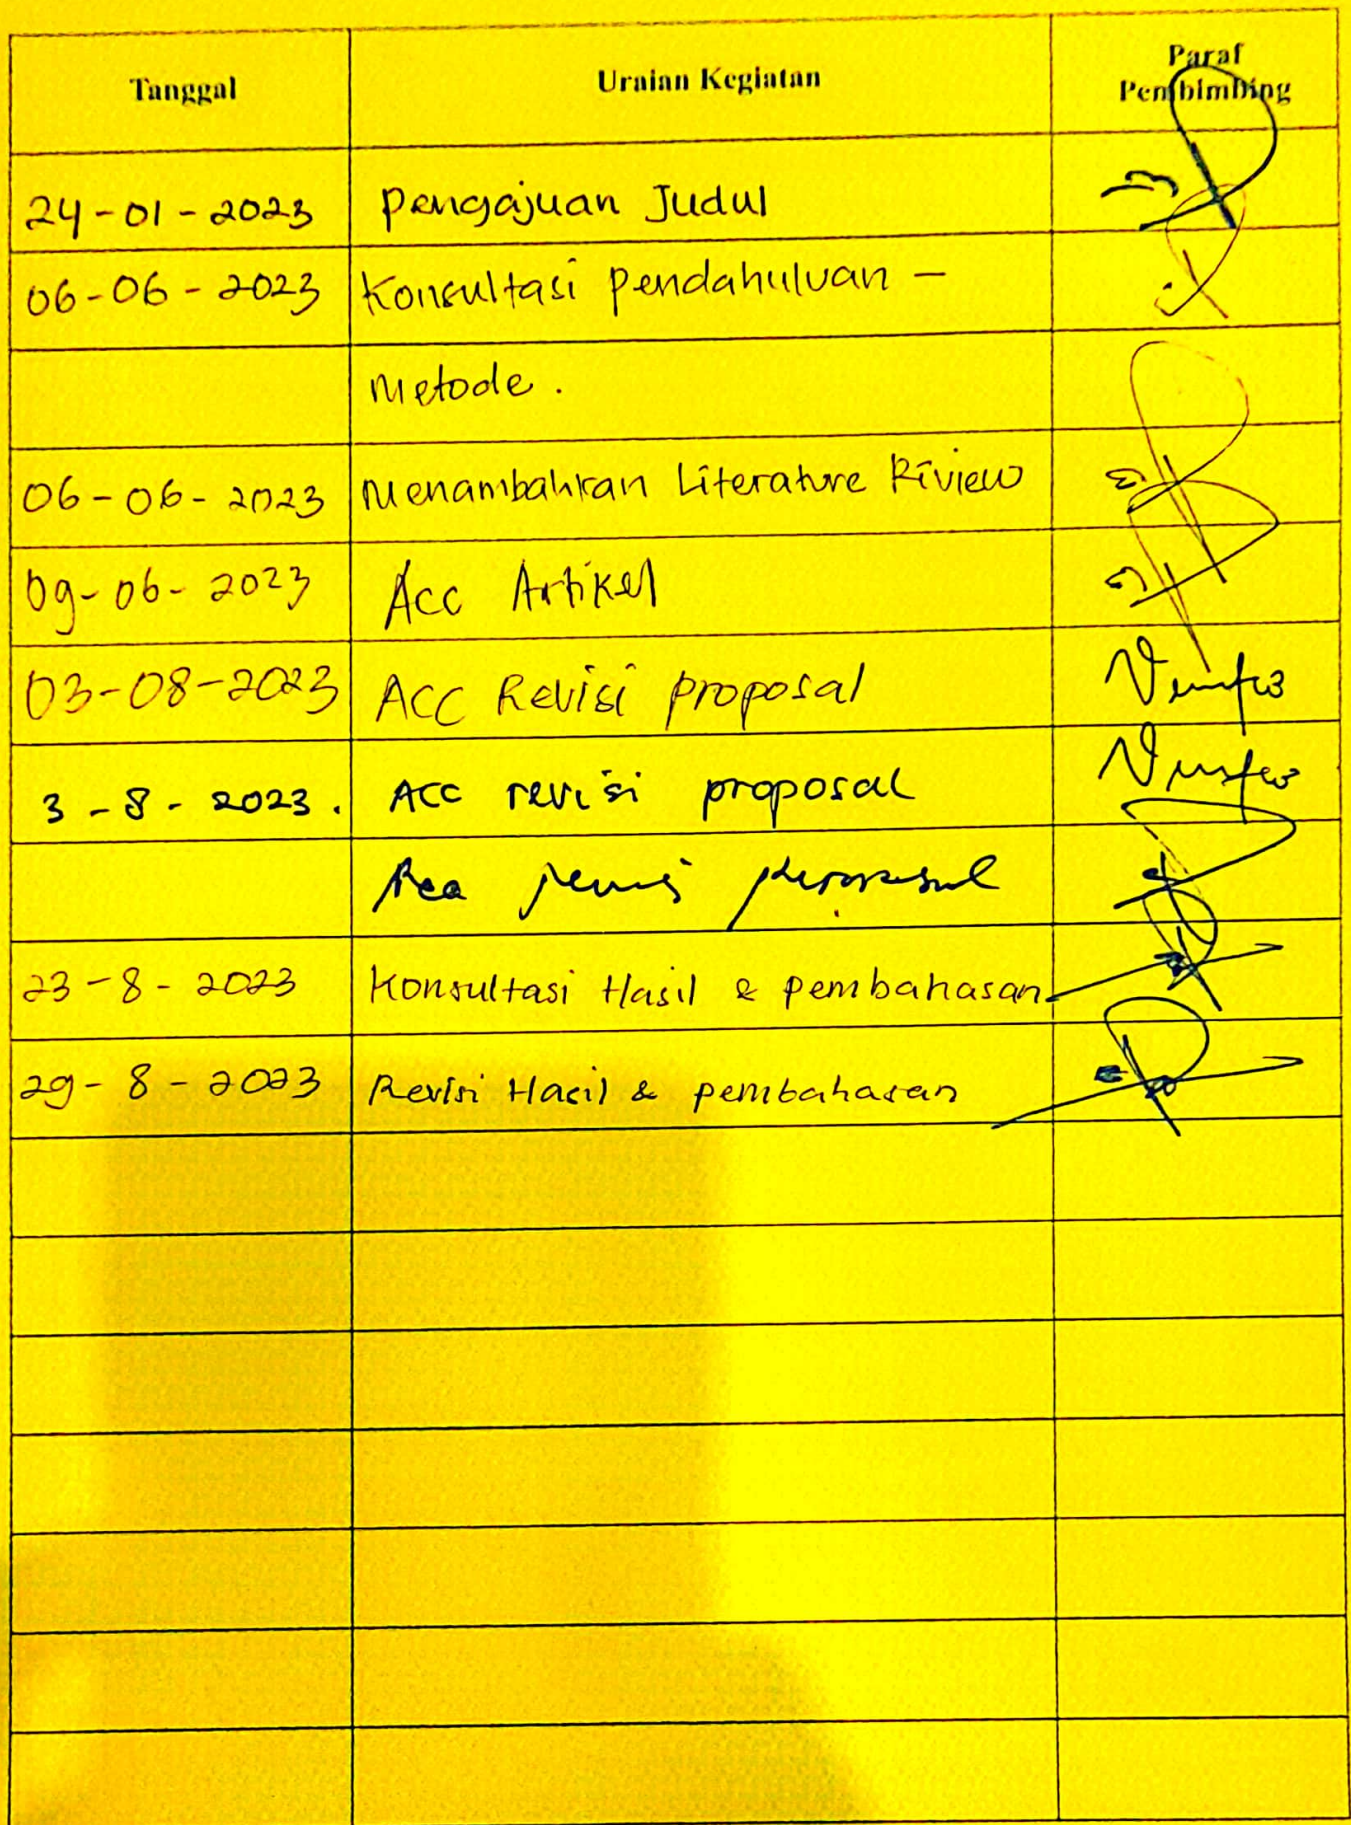 Tanggal Uraian Kegiatan Paraf
Pembimbing
24-01-2023 Pengajuan Judul
06-06-2023 Konsultasi Pendahuluan -
Metode.
06-06-2023 Menambahkan Literature Riview
09-06-2023 Acc Artikel
03-08-2023 ACC Revisi Proposal
3-8-2023. ACC revisi proposal
23-8-2023 Konsultasi Hasil & pembahasan
29-8-2023 Revisi Hasil & pembahasan